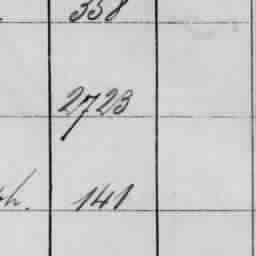 338
2723
th. 141